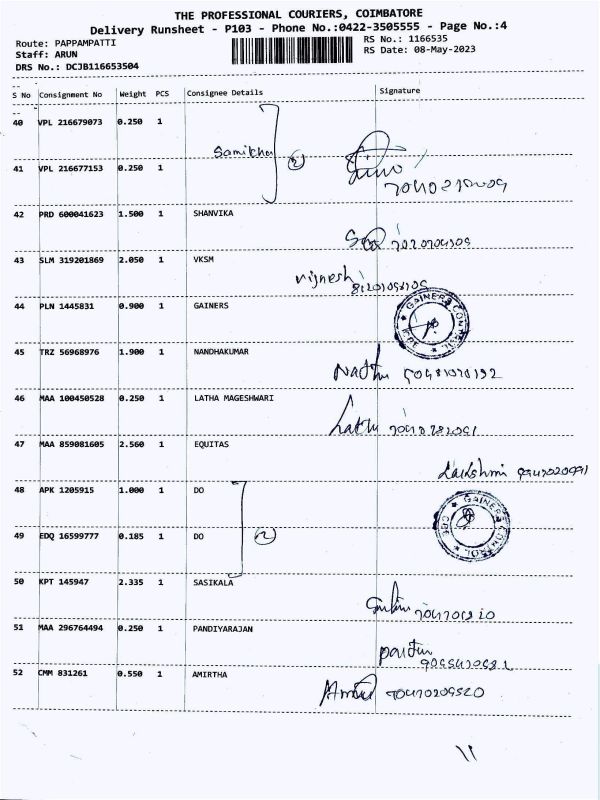 THE PROFESSIONAL COURIERS, COIMBATORE
Delivery Runsheet - P103 - Phone No.:0422-3505555 - Page No.:4
Route: PAPPAMPATTI
RS No.: 1166535
Staff: ARUN
RS Date: 08-May-2023
DRS No.: DCJB116653504
S No Consignment No Weight PCS Consignee Details Signature
40 VPL 216679073 0.250 1
Samikha 2
41 VPL 216677153 0.250 1
42 PRD 600041623 1.500 1 SHANVIKA
43 SLM 319201869 2.050 1 VKSM
Vignesh
44 PLN 1445831 0.900 1 GAINERS
GAINERS CONTROL CBE
45 TRZ 56968976 1.900 1 NANDHAKUMAR
46 MAA 100450528 0.250 1 LATHA MAGESHWARI
Latha
47 MAA 859081605 2.560 1 EQUITAS
Lakshmi
48 APK 1205915 1.000 1 DO
GAINERS CONTROL CBE
49 EDQ 16599777 0.185 1 DO
2
50 KPT 145947 2.335 1 SASIKALA
51 MAA 296764494 0.250 1 PANDIYARAJAN
52 CMM 831261 0.550 1 AMIRTHA
11